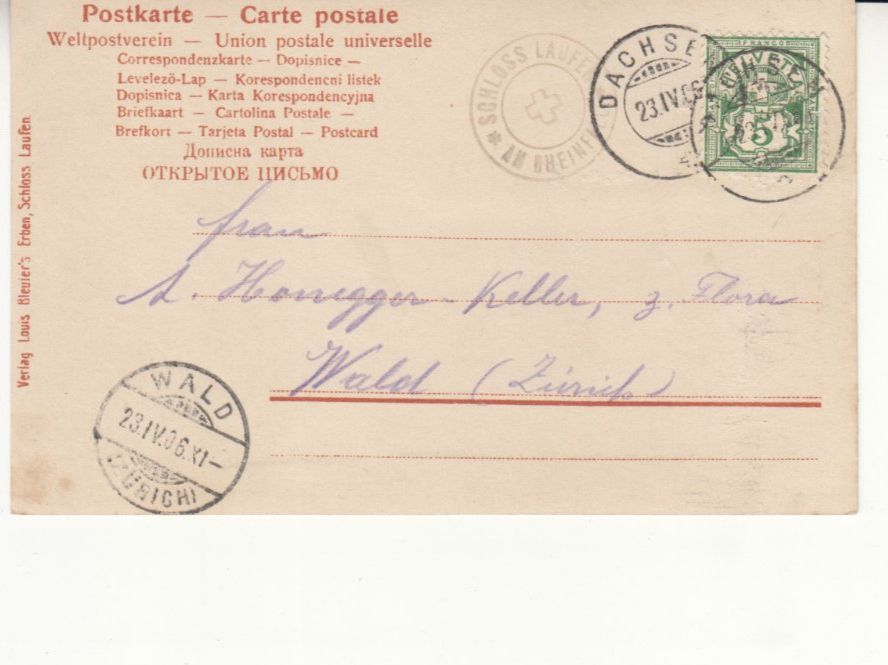 Postkarte — Carte postale
Weltpostverein — Union postale universelle
Correspondenzkarte — Dopisnice —
Levelező-Lap — Korespondencni listek
Dopisnica — Karta Korespondencyjna
Briefkaart — Cartolina Postale —
Brefkort — Tarjeta Postal — Postcard
Дописна карта
ОТКРЫТОЕ ПИСЬМО
SCHLOSS LAUFEN
AM RHEINF
DACHSE
23.IV.06
FRANCO
HELVETIA
5
Frau
A. Honegger-Keller, z. Flora
Wald (Zürich)
WALD
23.IV.06.XI–
(ZÜRICH)
Verlag Louis Bleuler's Erben, Schloss Laufen.